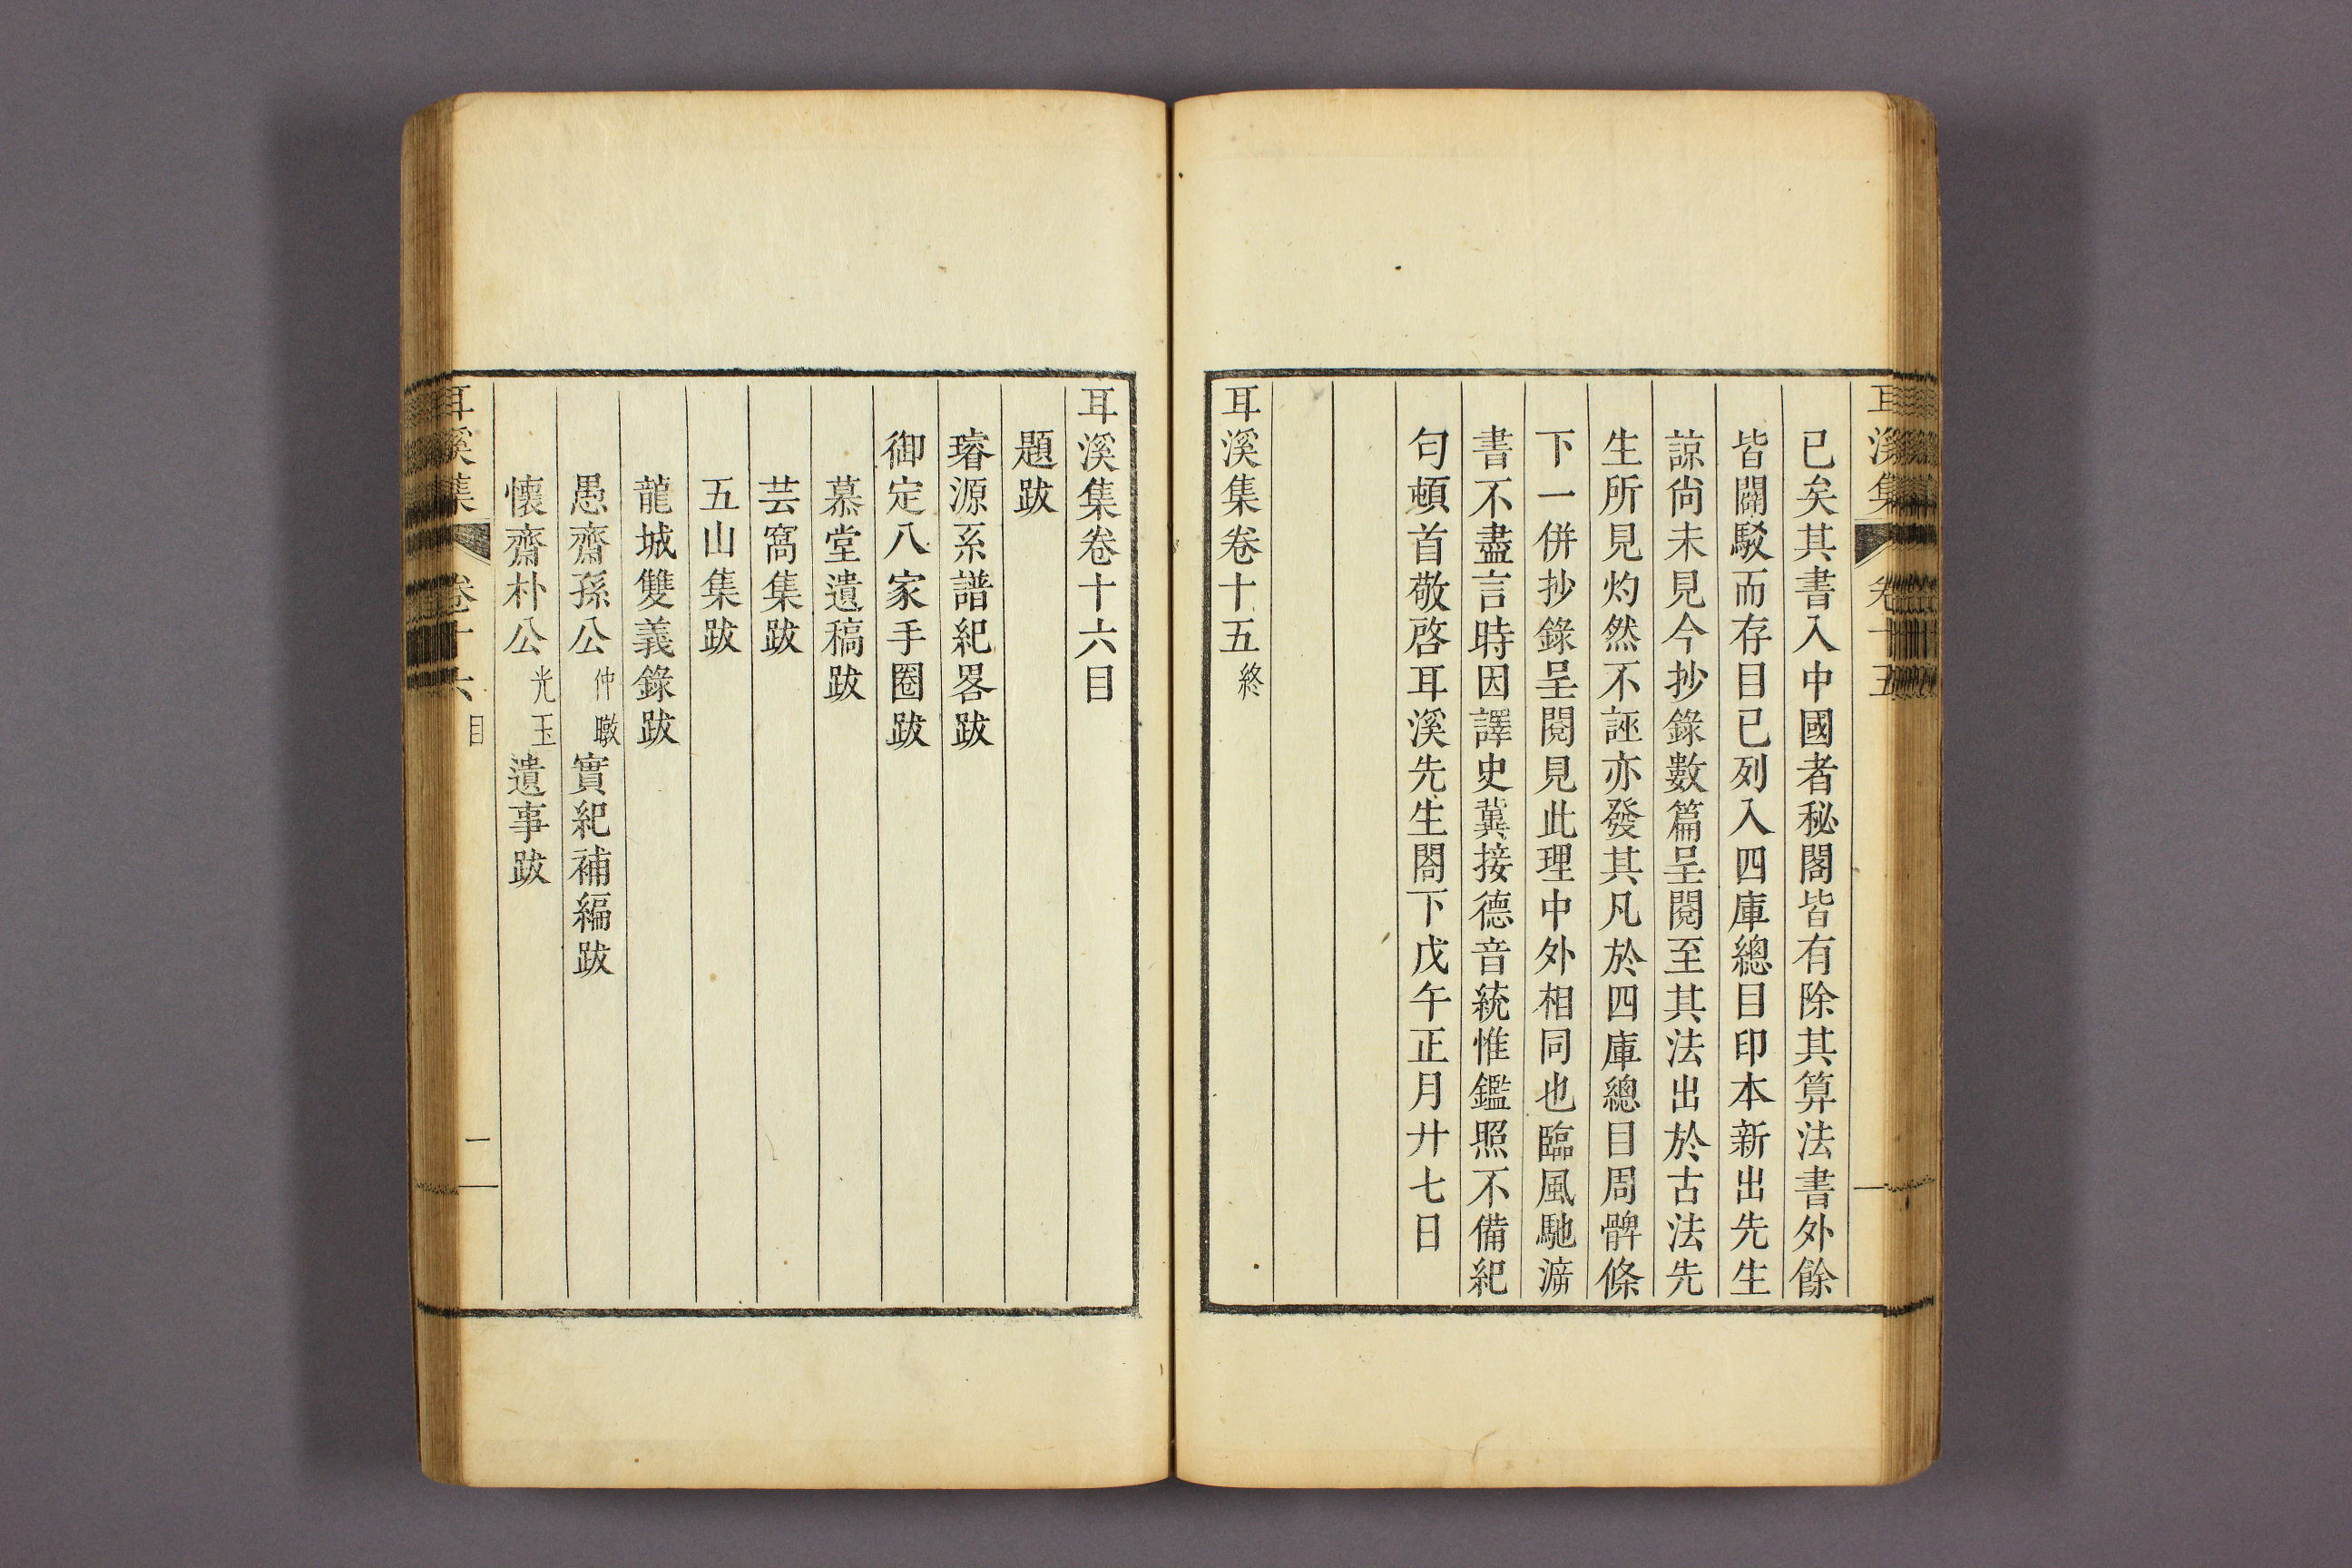 耳溪集 卷十五
已矣其書入中國者秘閣皆有除其算法書外餘
皆闢駁而存目已列入四庫總目印本新出先生
諒尙未見今抄錄數篇呈閱至其法出於古法先
生所見灼然不誣亦發其凡於四庫總目周髀條
下一併抄錄呈閱見此理中外相同也臨風馳溯
書不盡言時因譯史冀接德音統惟鑑照不備紀
勻頓首敬啓耳溪先生閤下戊午正月廾七日
耳溪集卷十五 終
耳溪集卷十六目
題跋
璿源系譜紀畧跋
御定八家手圈跋
慕堂遺稿跋
芸窩集跋
五山集跋
龍城雙義錄跋
愚齋孫公 仲暾 實紀補編跋
懷齋朴公 光玉 遺事跋
耳溪集 卷十六 目 二